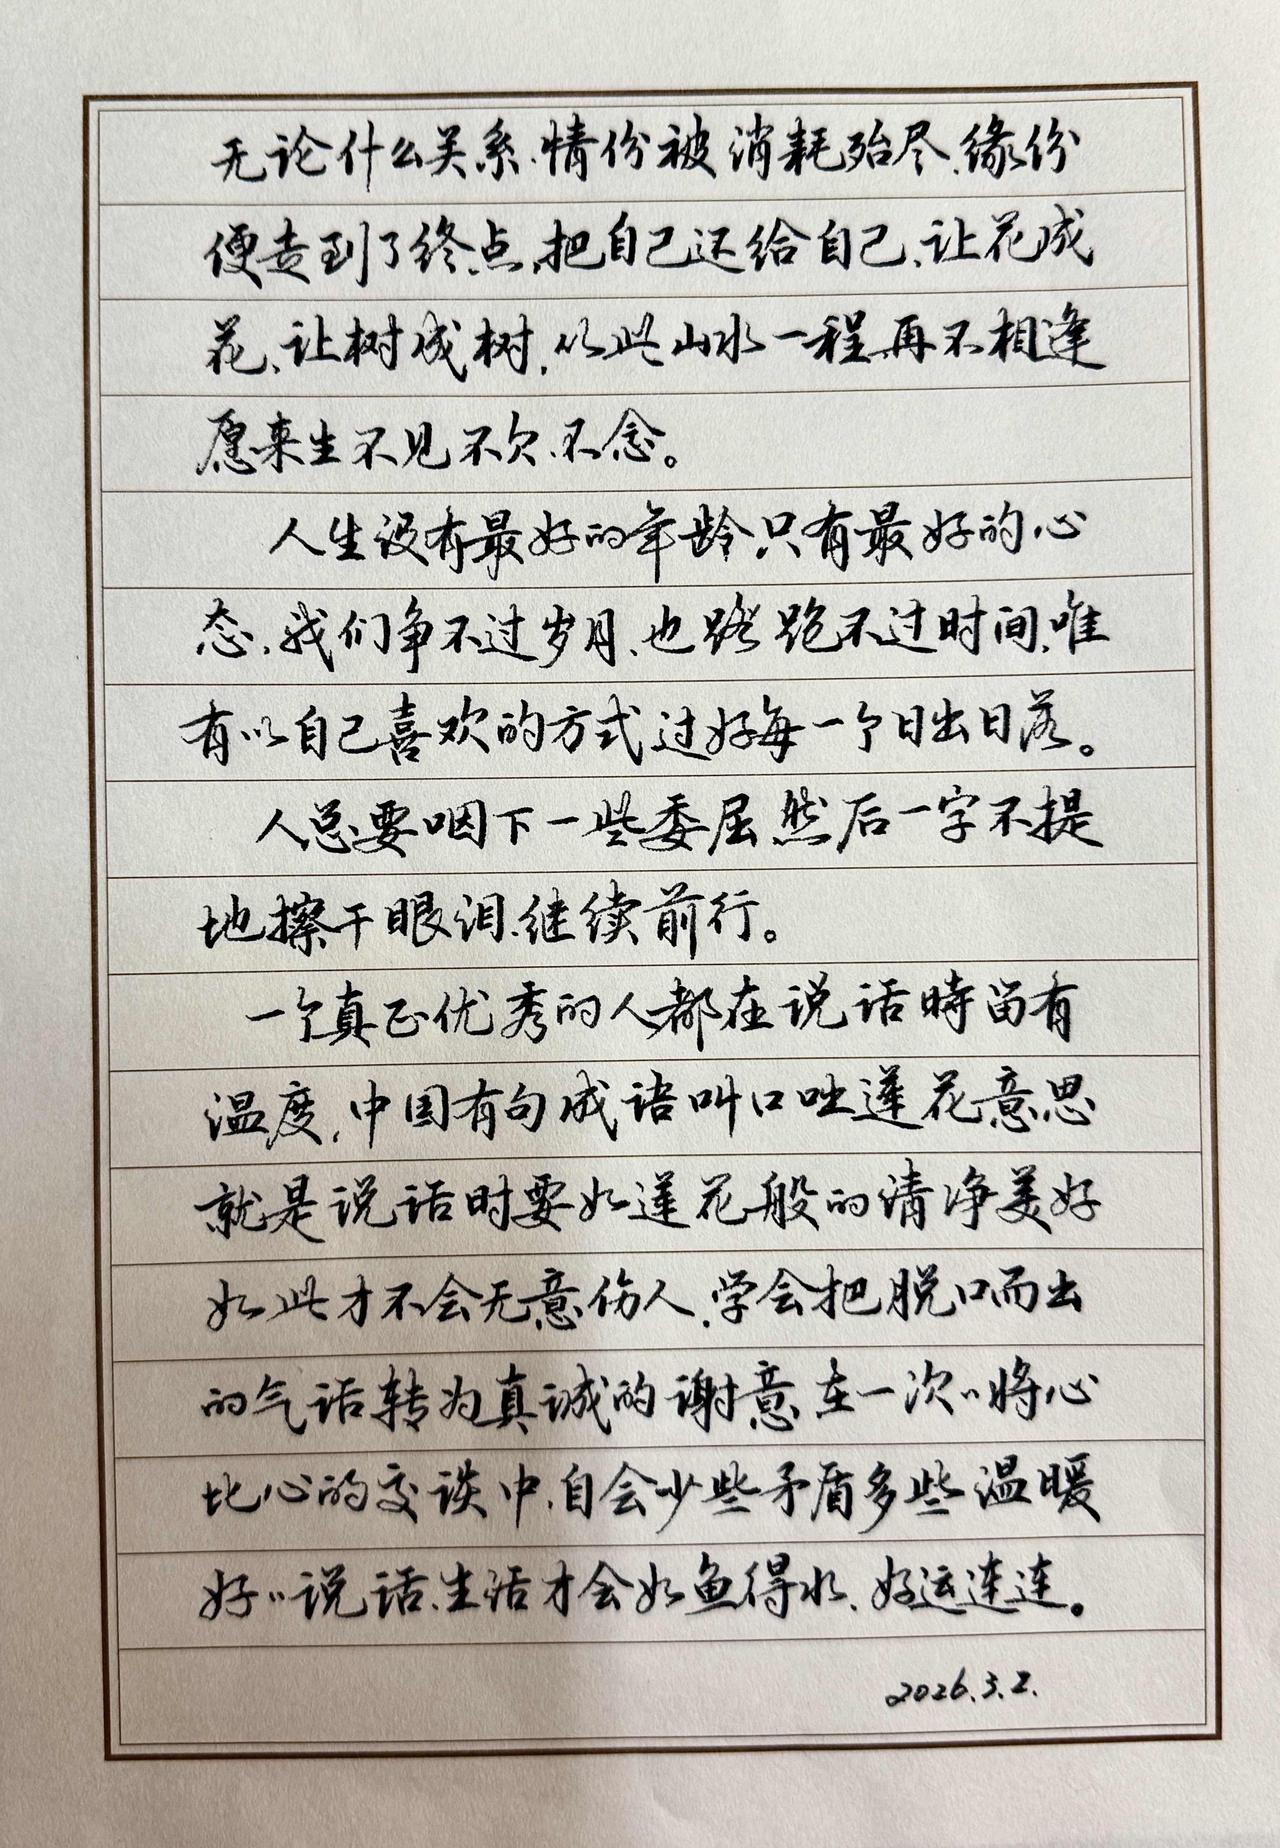 无论什么关系、情份被消耗殆尽、缘份
便走到了终点,把自己还给自己、让花成
花、让树成树,从此山水一程、再不相逢
愿来生不见不欠、不念。
人生没有最好的年龄、只有最好的心
态、我们争不过岁月、也跑不过时间、唯
有以自己喜欢的方式过好每一个日出日落。
人总要咽下一些委屈然后一字不提
地擦干眼泪、继续前行。
一个真正优秀的人都在说话時留有
温度,中国有句成语叫口吐莲花意思
就是说话时要如莲花般的清净美好
如此才不会无意伤人、学会把脱口而出
的气话转为真诚的谢意在一次〃将心
比心的交谈中、自会少些矛盾多些温暖
好〃说话、生活才会如鱼得水、好运连连。
2026.3.2.